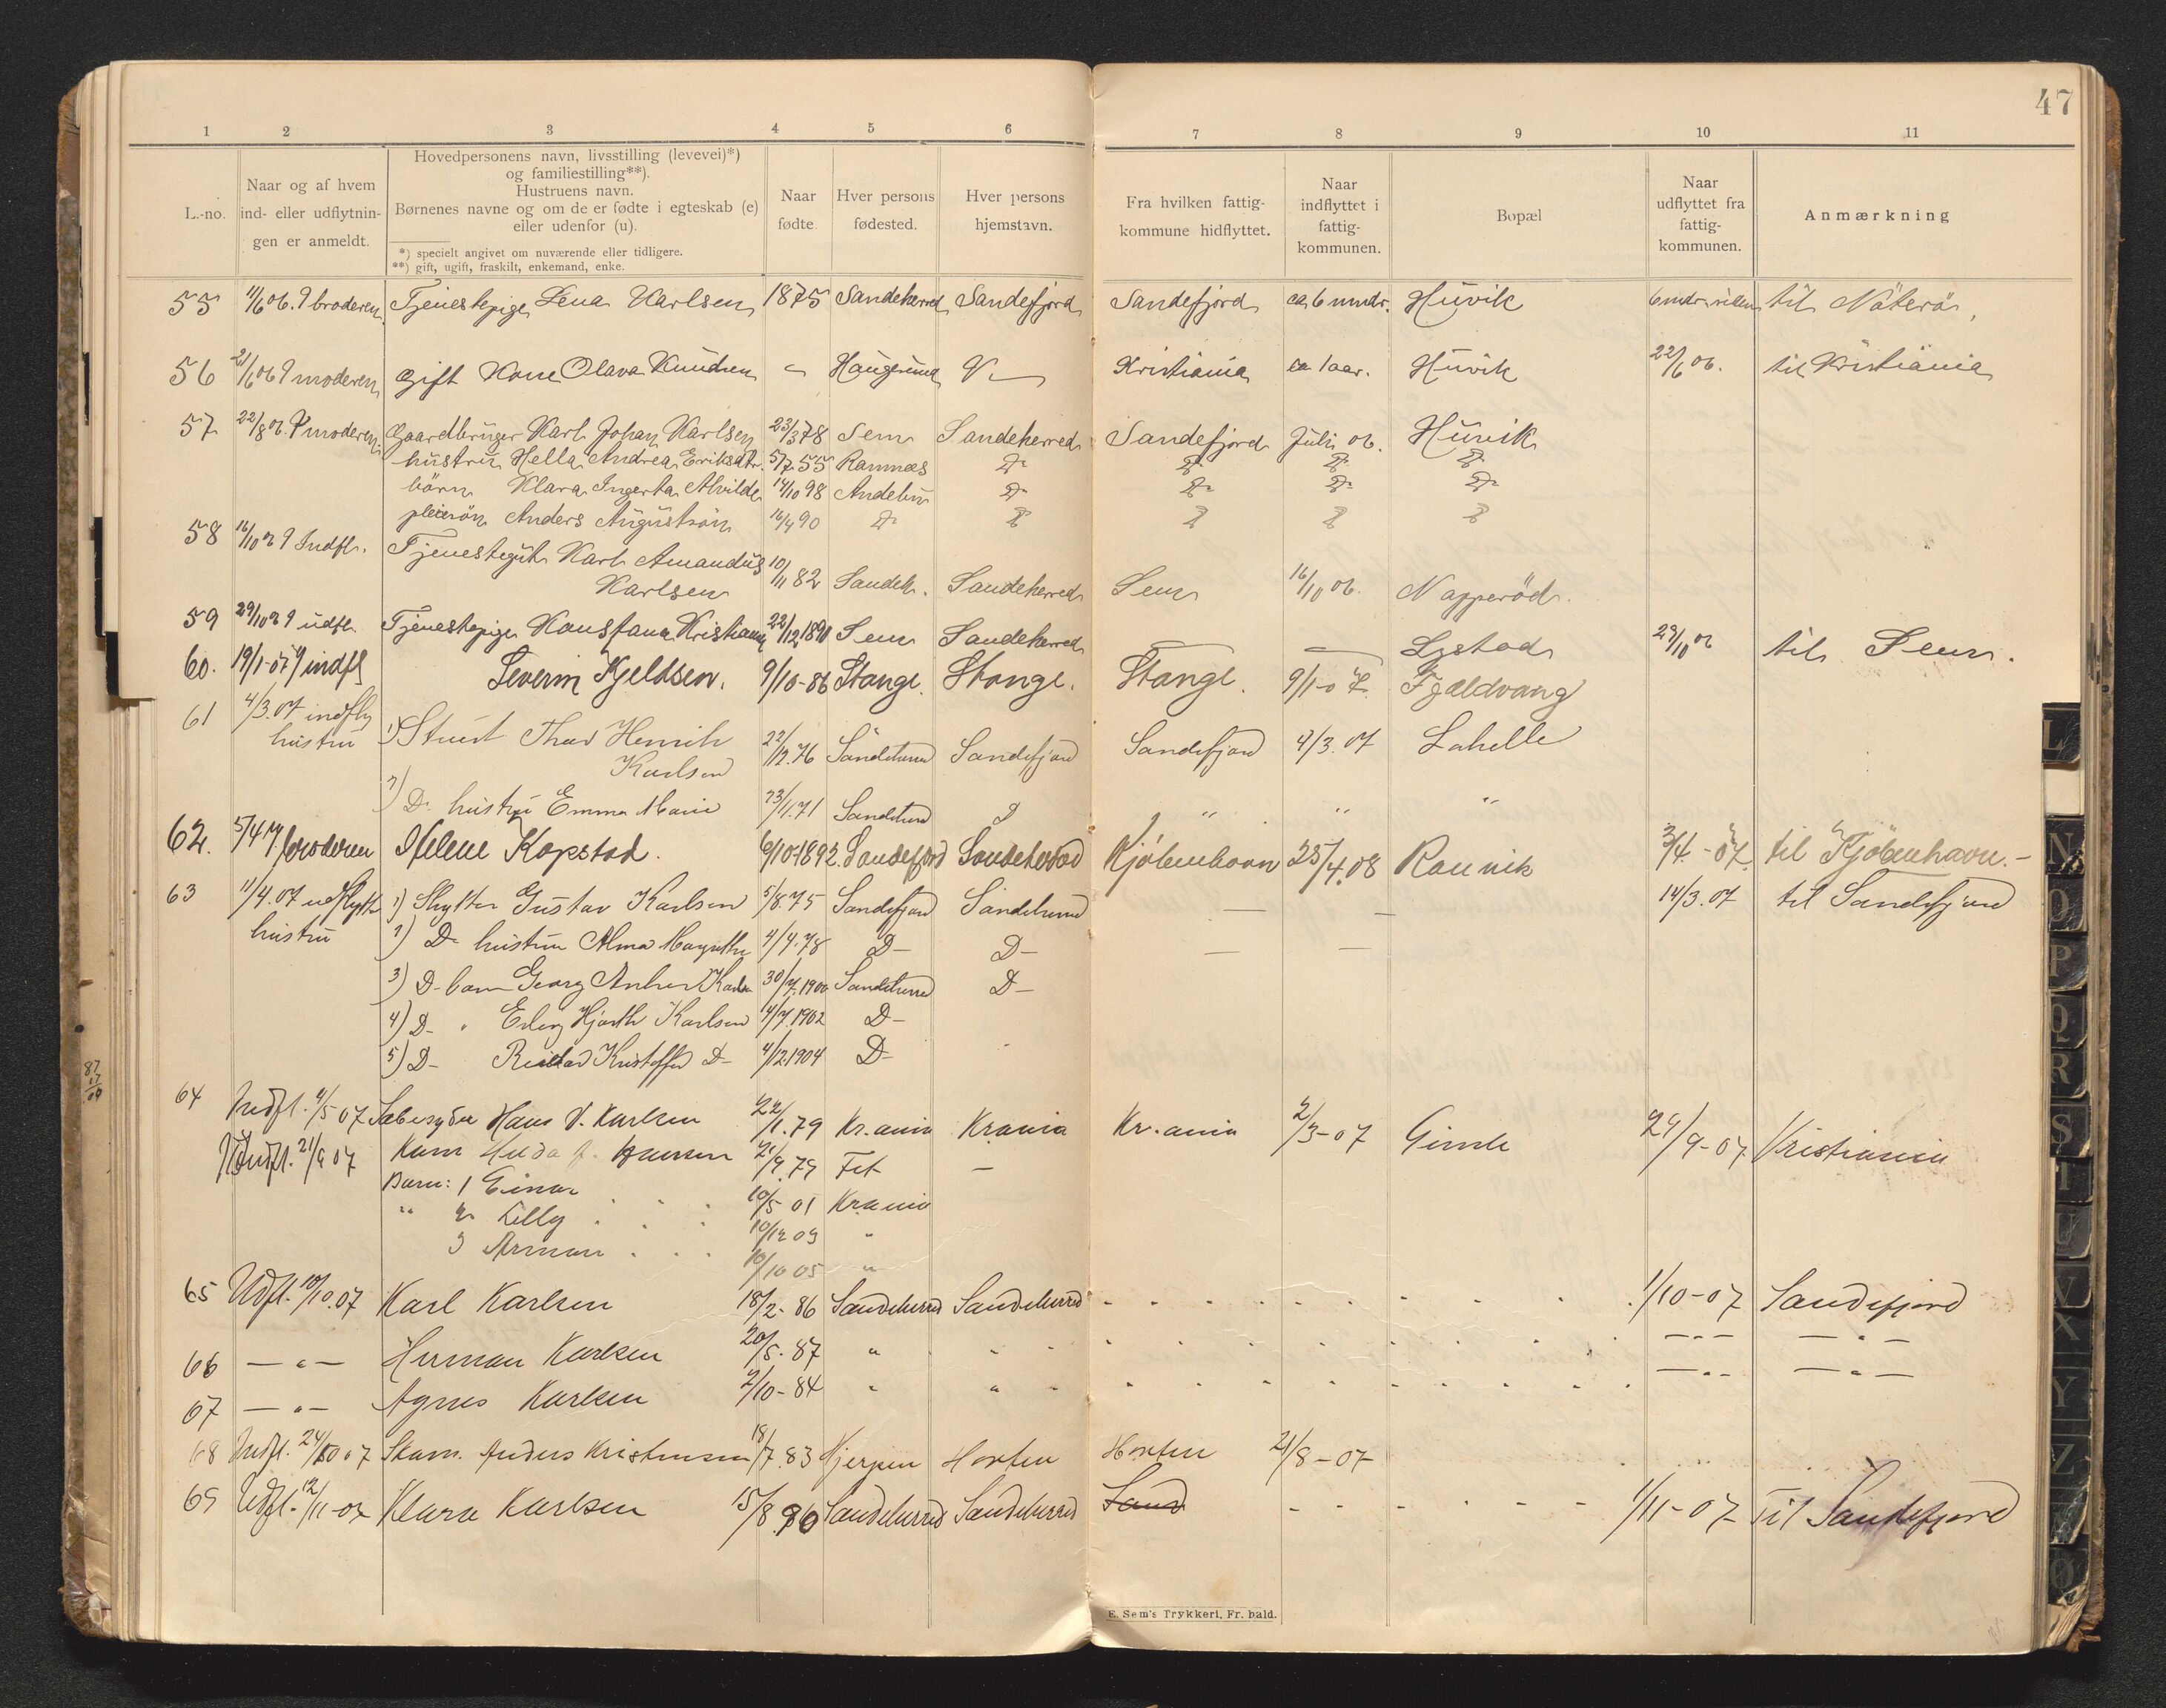 47
1 2 3 4 5 6 7 8 9 10 11
L.-no.
Naar og af hvem
ind- eller udflytnin-
gen er anmeldt.
Hovedpersonens navn, livsstilling (levevei)*)
og familiestilling**).
Hustruens navn.
Børnenes navne og om de er fødte i egteskab (e)
eller udenfor (u).
*) specielt angivet om nuværende eller tidligere.
**) gift, ugift, fraskilt, enkemand, enke.
Naar
fødte.
Hver persons
fødested.
Hver persons
hjemstavn.
Fra hvilken fattig-
kommune hidflyttet.
Naar
indflyttet i
fattig-
kommunen.
Bopæl
Naar
udflyttet fra
fattig-
kommunen.
Anmærkning
55 11/6 06. broderen Tjenestepige Lena Karlsen 1875 Sandeherred Sandefjord Sandefjord ca 6 mndr. Huvik 6 mdr siden til Nøterø,
56 21/6 06 moderen Gift Kone Olava Knudsen Haugesund Kristiania ca 1 aar. Huvik 22/6 06. til Kristiania
57 22/8 06. moderen. Gaardbruger Karl Johan Karlsen 23/3 78 Sem Sandeherred Sandefjord Juli 06. Huvik
hustru Hella Andrea Eriksdtr. 5/7 55 Ramnes D. D. D. D.
børn Klara Ingerta Alvilde 14/10 98 Andebu D. D. D. D.
pleiesøn Anders Augustsøn 16/4 90 D. D. D. D. D.
58 16/10 06 Indfl. Tjenestegut Karl Amandus
Karlsen 10/11 82 Sandeh. Sandeherred Sem 16/10 06. Napperød.
59 29/10 06 udfl. Tjenestepige Konstance Kristiansen 22/12 1890 Sem Sandeherred — — Lystad 29/10 06 til Sem.
60. 19/1-07 indfl Severin Kjeldsen. 9/10-86 Stange. Stange. Stange. 9/1-07. Fjældvang
61 4/3.07 indfly 1) Stuert Thor Henrik
hustru Karlsen 22/12.76 Sandeherred Sandefjord Sandefjord 4/3.07 Lahelle
2) D. hustru Emma Marie 23/1.71 Sandeherred D " " "
62. 5/4 07 broderen Helene Kopstad. 6/10-1892. Sandefjord Sandeherred Kjöbenhavn 25/4.08 Rauvik 3/4.-07 til Kjöbenhavn.-
63 11/4.07 udflytte 1) Skytter Gustav Karlsen 5/8.75 Sandefjord Sandeherred — — 14/3.07 til Sandefjord
hustru 2) D- hustru Alma Margrethe 4/4.78 D- D- — —
3) D- barn Georg Anker Karlsen 30/7.1900 Sandeherred D-
4) D- " Erling Hjorth Karlsen 4/7.1902 D-
5) D- Reidar Kristoffer D- 4/12.1904 D-
64 Indfl. 4/5 07 Sæbesyder Hans V. Karlsen 22/1.79 Kr.ania Krania Kr.ania 2/3-07 Gimle 24/9-07 Kristiania
Udfl. 21/9 07 Kone Hulda f. Hansen 21/9.79 Fet —
Barn: 1 Einar . . . 10/5 01 Krania
" 2 Lilly . . . 10/12 03 "
3 Arman . . . 10/10 05 "
65 Udfl. 10/10.07 Karl Karlsen 18/2-86 Sandeherred Sandeherred 1/10-07 Sandefjord
66 — " — Herman Karlsen 20/5.87 " " — " — — " —
67 — " — Agnes Karlsen 2/10-84 " " — " — — " —
68 Indfl. 24/10 07 Skom. Anders Kristensen 18/7.83 Hjerpen Horten Horten 21/8-07
69 Udfl. 12/11-07 Klara Karlsen 15/8 90 Sandeherred Sandeherred Sand 1/11-07 Til Sandefjord
E. Sem's Trykkeri, Fr. hald.
87
17
09
L N O P Q R S T U V X Y Z Ø